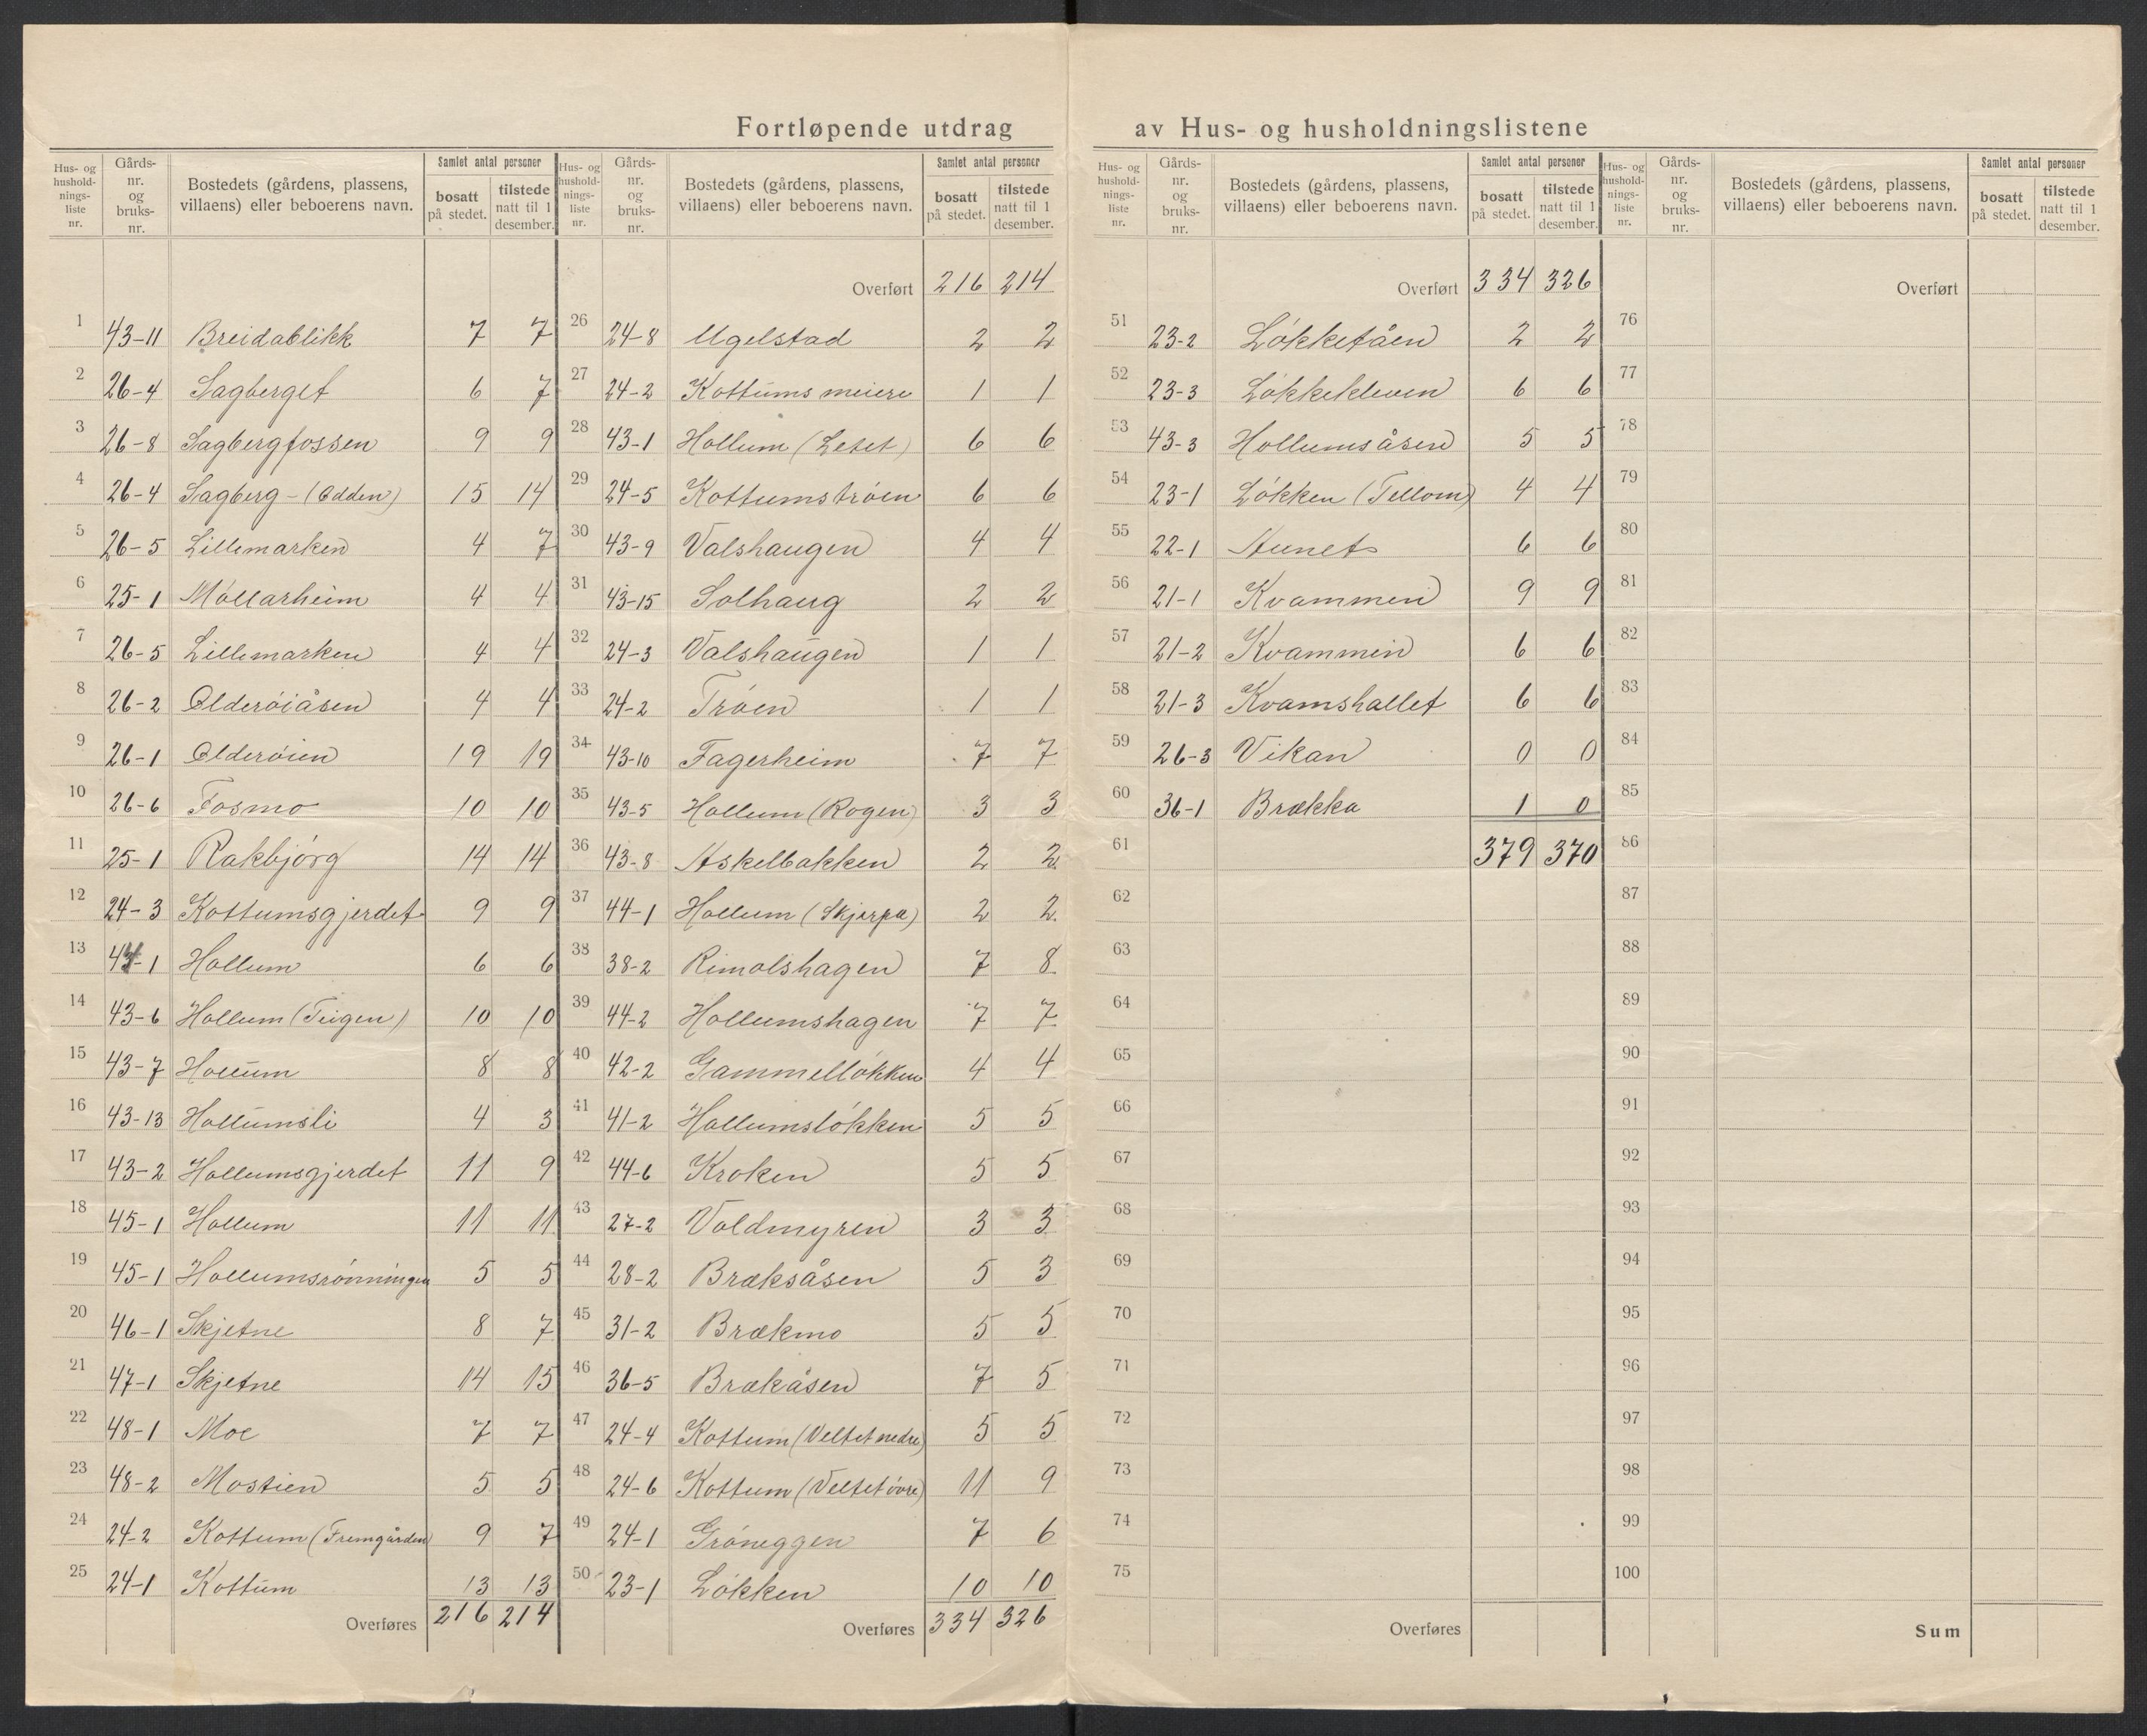 Fortløpende utdrag av Hus- og husholdningslistene
Hus- og hushold-nings-liste nr. | Gårds-nr. og bruks-nr. | Bostedets (gårdens, plassens, villaens) eller beboerens navn. | Samlet antal personer | bosatt på stedet. | tilstede natt til 1 desember.
1 43-11 Breidablikk 7 7
2 26-4 Sagberget 6 7
3 26-8 Sagbergfossen 9 9
4 26-4 Sagberg - (Odden) 15 14
5 26-5 Lillemarken 4 7
6 25-1 Möllarheim 4 4
7 26-5 Lillemarken 4 4
8 26-2 Olderöiåsen 4 4
9 26-1 Olderöien 19 19
10 26-6 Fosmo 10 10
11 25-1 Rakbjörg 14 14
12 24-3 Kottumsgjerdet 9 9
13 Hollum 6 6
14 43-6 Hollum (Teigen) 10 10
15 43-7 Hollum 8 8
16 43-13 Hollumsli 4 3
17 43-2 Hollumsgjerdet 11 9
18 45-1 Hollum 11 11
19 45-1 Hollumsrönningen 5 5
20 46-1 Skjetne 8 7
21 47-1 Skjetne 14 15
22 48-1 Moe 7 7
23 48-2 Mostien 5 5
24 24-2 Kottum (Fremgården) 9 7
25 24-1 Kottum 13 13
Overføres 216 214
Hus- og hushold-nings-liste nr. | Gårds-nr. og bruks-nr. | Bostedets (gårdens, plassens, villaens) eller beboerens navn. | Samlet antal personer | bosatt på stedet. | tilstede natt til 1 desember.
Overført 216 214
26 24-8 Ugelstad 2 2
27 24-2 Kottums meiere 1 1
28 43-1 Hollum (Letet) 6 6
29 24-5 Kottumströen 6 6
30 43-9 Valshaugen 4 4
31 43-15 Solhaug 2 2
32 24-3 Valshaugen 1 1
33 24-2 Tröen 1 1
34 43-10 Fagerheim 7 7
35 43-5 Hollum (Rogen) 3 3
36 43-8 Askelbakken 2 2
37 44-1 Hollum (Skjerpa) 2 2
38 38-2 Rimolshagen 7 8
39 44-2 Hollumshagen 7 7
40 42-2 Gammellökken 4 4
41 41-2 Hollumslökken 5 5
42 44-6 Kroken 5 5
43 27-2 Voldmyren 3 3
44 28-2 Bræksåsen 5 3
45 31-2 Brækmo 5 5
46 36-5 Brækåsen 7 5
47 24-4 Kottum (Veltet nedre) 5 5
48 24-6 Kottum (Veltet övre) 11 9
49 24-1 Gröneggen 7 6
50 23-1 Lökken 10 10
Overføres 334 326
Hus- og hushold-nings-liste nr. | Gårds-nr. og bruks-nr. | Bostedets (gårdens, plassens, villaens) eller beboerens navn. | Samlet antal personer | bosatt på stedet. | tilstede natt til 1 desember.
Overført 334 326
51 23-2 Lökketåen 2 2
52 23-3 Lökkekleven 6 6
53 43-3 Hollumsåsen 5 5
54 23-1 Lökken (Tellom) 4 4
55 22-1 Aunet 6 6
56 21-1 Kvammen 9 9
57 21-2 Kvammen 6 6
58 21-3 Kvamshallet 6 6
59 26-3 Vikan 0 0
60 36-1 Brækka 1 0
61 379 370
62
63
64
65
66
67
68
69
70
71
72
73
74
75
Overføres
Hus- og hushold-nings-liste nr. | Gårds-nr. og bruks-nr. | Bostedets (gårdens, plassens, villaens) eller beboerens navn. | Samlet antal personer | bosatt på stedet. | tilstede natt til 1 desember.
Overført
76
77
78
79
80
81
82
83
84
85
86
87
88
89
90
91
92
93
94
95
96
97
98
99
100
Sum